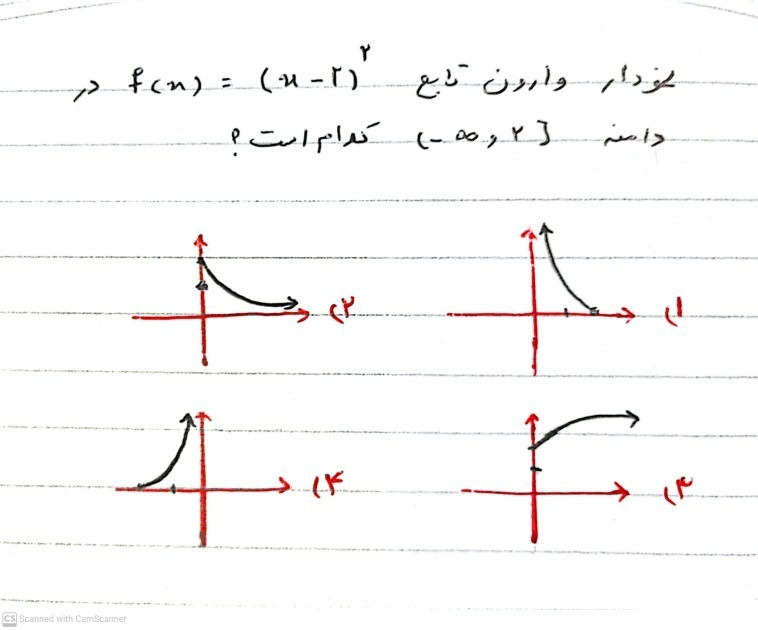 نمودار وارون تابع f(x) = (x-۲)^۲ در
دامنه (-∞ و ۲] کدام است؟
۱)
۲)
۳)
۴)
CS Scanned with CamScanner